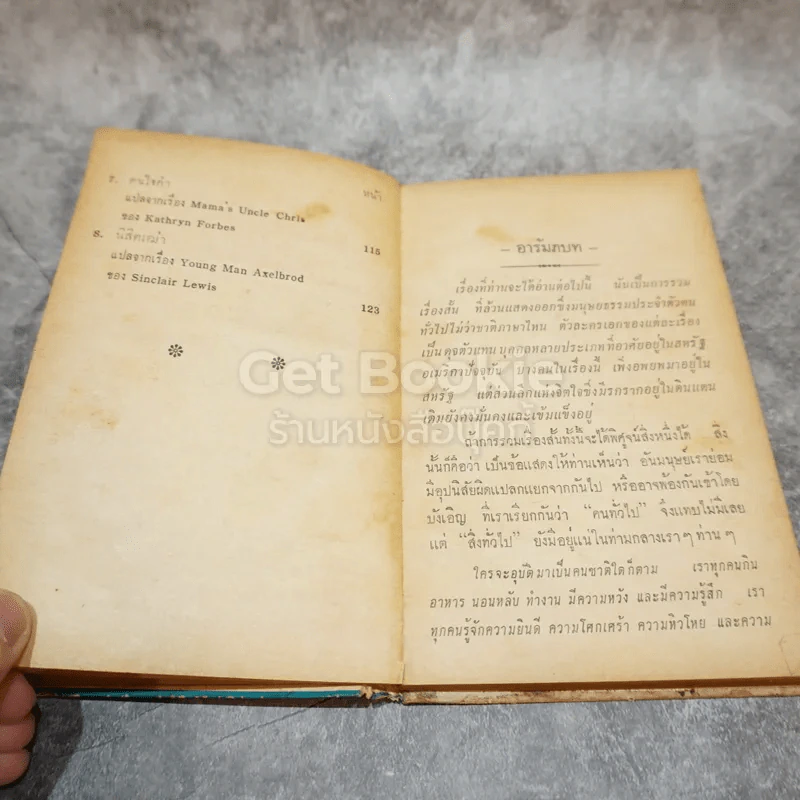 ๗. คนใจดำ
หน้า
แปลจากเรื่อง Mama's Uncle Chris
ของ Kathryn Forbes
115
๘. นิสิตเฒ่า
แปลจากเรื่อง Young Man Axelbrod
ของ Sinclair Lewis
123
– อารัมภบท –
เรื่องที่ท่านจะได้อ่านต่อไปนี้ นับเป็นการรวม
เรื่องสั้น ที่ล้วนแสดงออกซึ่งมนุษยธรรมประจำตัวคน
ทั่วไปไม่ว่าชาติภาษาไหน ตัวละครเอกของแต่ละเรื่อง
เป็นดุจตัวแทนบุคคลหลายประเภทที่อาศัยอยู่ในสหรัฐ
อเมริกาปัจจุบัน บางคนในเรื่องนี้ เพิ่งอพยพมาอยู่ใน
สหรัฐ แต่ส่วนลึกแห่งจิตใจซึ่งมีรกรากอยู่ในดินแดน
เดิมยังคงมั่นคงและเข้มแข็งอยู่
ถ้าการรวมเรื่องสั้นทั้งนี้จะได้พิศูจน์สิ่งหนึ่งได้ สิ่ง
นั้นก็คือว่า เป็นข้อแสดงให้ท่านเห็นว่า อันมนุษย์เราย่อม
มีอุปนิสัยผิดแปลกแยกจากกันไป หรืออาจพ้องกันเข้าโดย
บังเอิญ ที่เราเรียกกันว่า “คนทั่วไป” จึงแทบไม่มีเลย
แต่ “สิ่งทั่วไป” ยังมีอยู่แน่ในท่ามกลางเรา ๆ ท่าน ๆ
ใครจะอุบัติมาเป็นคนชาติใดก็ตาม เราทุกคนกิน
อาหาร นอนหลับ ทำงาน มีความหวัง และมีความรู้สึก เรา
ทุกคนรู้จักความยินดี ความโศกเศร้า ความหิวโหย และความ
Get Bookie
ร้านหนังสือบุ๊คกี้